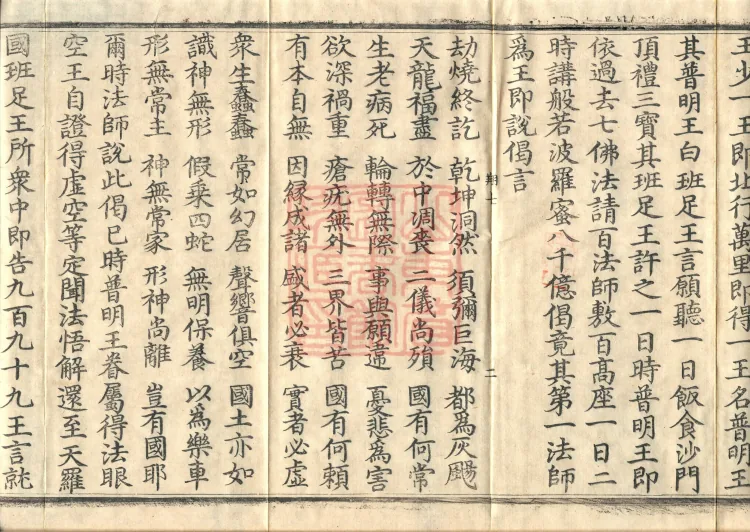 王少一王即北行萬里即得一王名普明王
其普明王白班足王言願聽一日飯食沙門
頂禮三寶其班足王許之一日時普明王即
依過去七佛法請百法師敷百高座一日二
時講般若波羅蜜八千億偈竟其第一法師
爲王即說偈言
翔七 二
劫燒終訖 乾坤洞然 須彌巨海 都爲灰颺
天龍福盡 於中凋喪 二儀尚殞 國有何常
生老病死 輪轉無際 事與願違 憂悲為害
欲深禍重 瘡疣無外 三界皆苦 國有何賴
有本自無 因緣成諸 盛者必衰 實者必虛
衆生蠢蠢 常如幻居 聲響俱空 國土亦如
識神無形 假乘四蛇 無明保養 以為樂車
形無常主 神無常家 形神尚離 豈有國耶
爾時法師說此偈已時普明王眷屬得法眼
空王自證得虛空等定聞法悟解還至天羅
國班足王所衆中即告九百九十九王言就